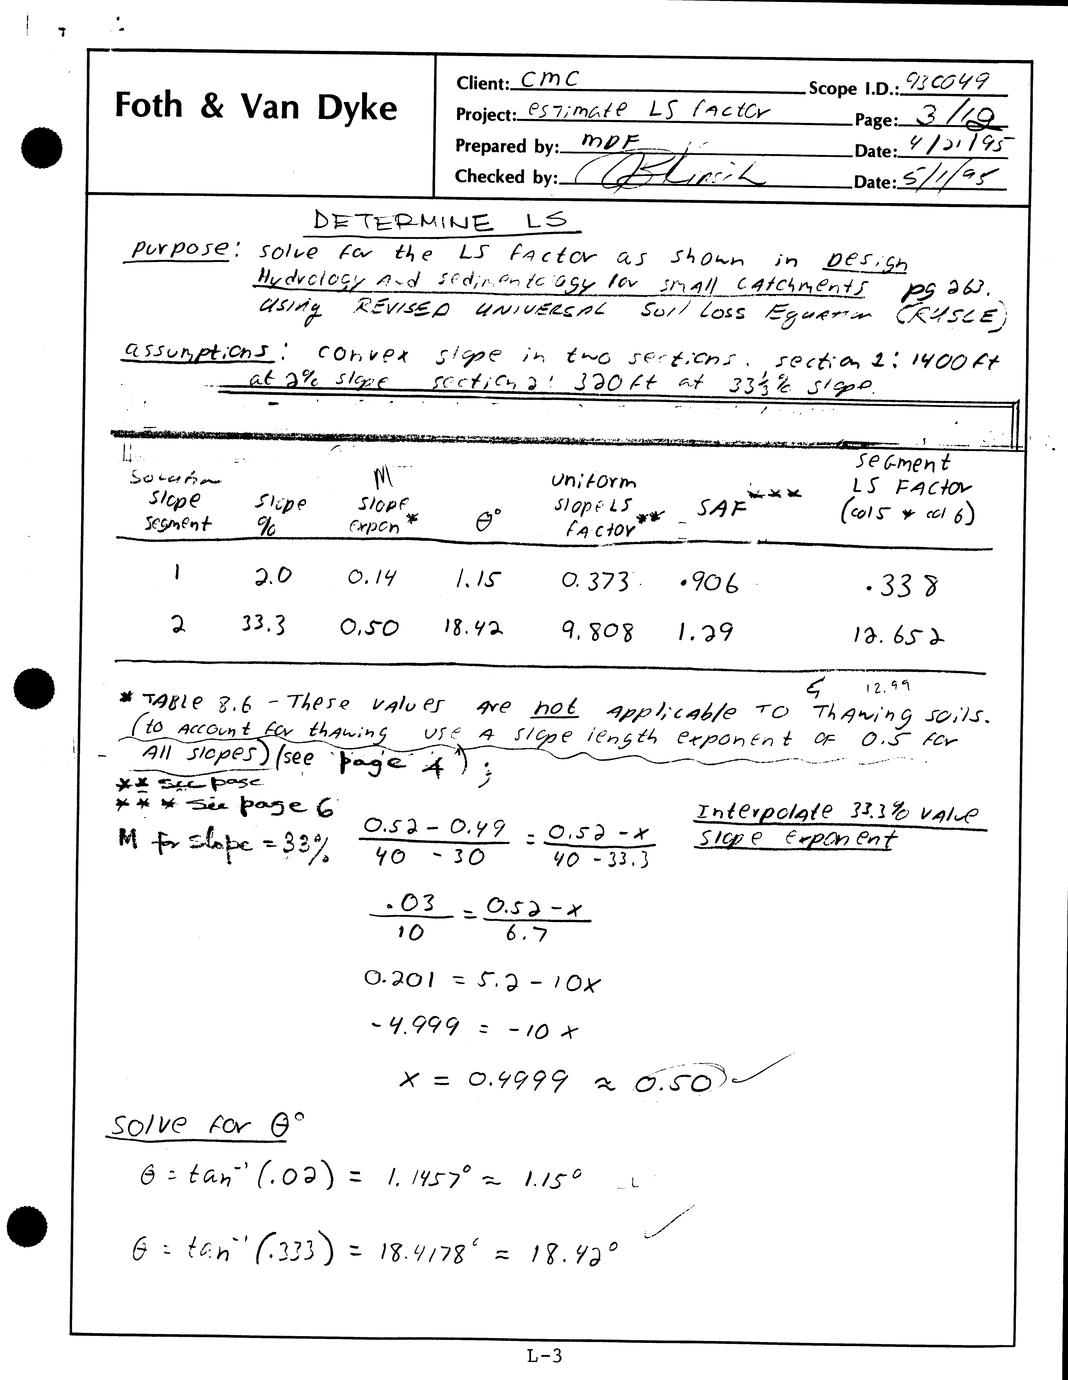 Foth & Van Dyke
Client: CMC Scope I.D.: 93C049
Project: estimate LS factor Page: 3/12
Prepared by: MDF Date: 4/21/95
Checked by: Date: 5/1/95
DETERMINE LS
purpose: solve for the LS factor as shown in Design
Hydrology And sedimentology for small catchments pg 263.
using REVISED UNIVERSAL Soil Loss Equation (RUSLE)
assumptions: convex slope in two sections. section 1: 1400 ft
at 2% slope section 2: 320 ft at 33⅓% slope.
slope segment
slope %
M slope expon *
θ°
uniform slope LS factor **
SAF ***
segment LS FACTOR (col 5 * col 6)
1 2.0 0.14 1.15 0.373 .906 .338
2 33.3 0.50 18.42 9.808 1.29 12.652
12.99
* TABLE 8.6 - These values are not applicable to Thawing soils.
(to account for thawing use a slope length exponent of 0.5 for
All slopes) (see page 4);
** see page
*** see page 6
Interpolate 33.3% value
slope exponent
M for slope = 33% 0.52 - 0.49 / 40 - 30 = 0.52 - x / 40 - 33.3
.03 / 10 = 0.52 - x / 6.7
0.201 = 5.2 - 10x
-4.999 = -10x
x = 0.4999 ≈ 0.50 ✓
solve for θ°
θ = tan⁻¹ (.02) = 1.1457° ≈ 1.15°
θ = tan⁻¹ (.333) = 18.4178° ≈ 18.42° ✓
L-3